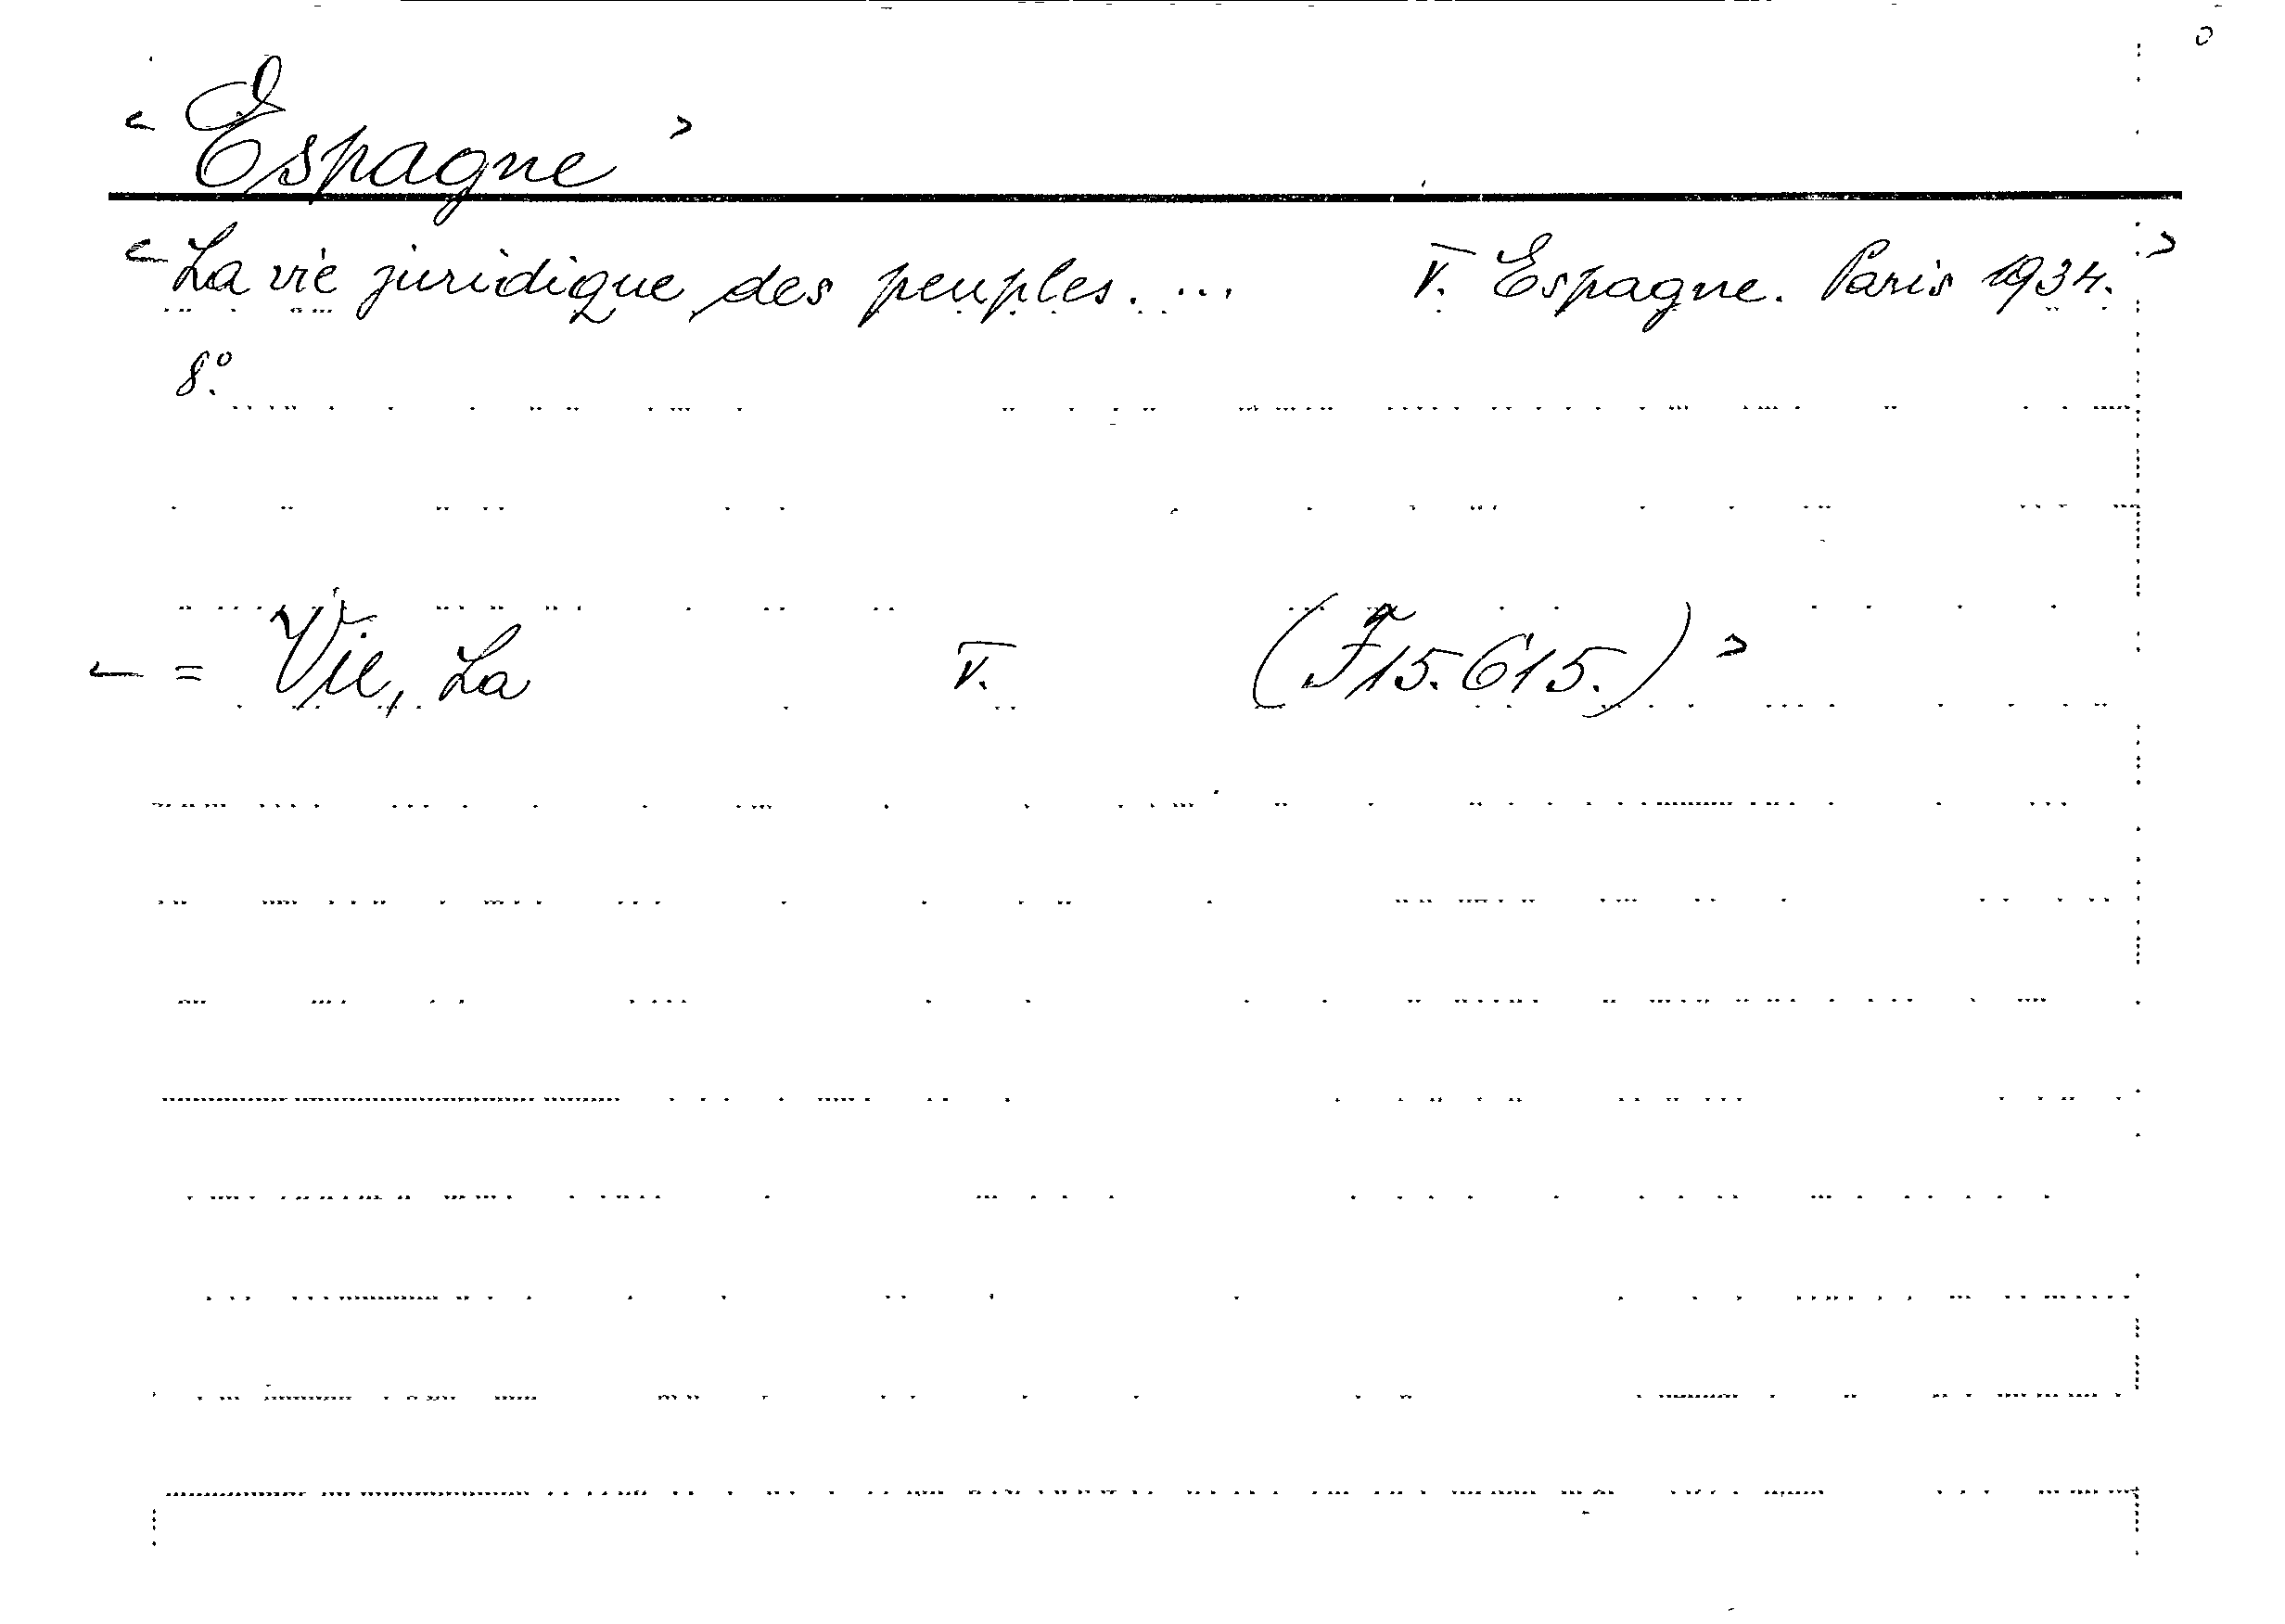 < Espagne >
< La vie juridique des peuples. ... V. Espagne. Paris 1934. >
8°.
< = Vie, La V. (F 15.615.) >